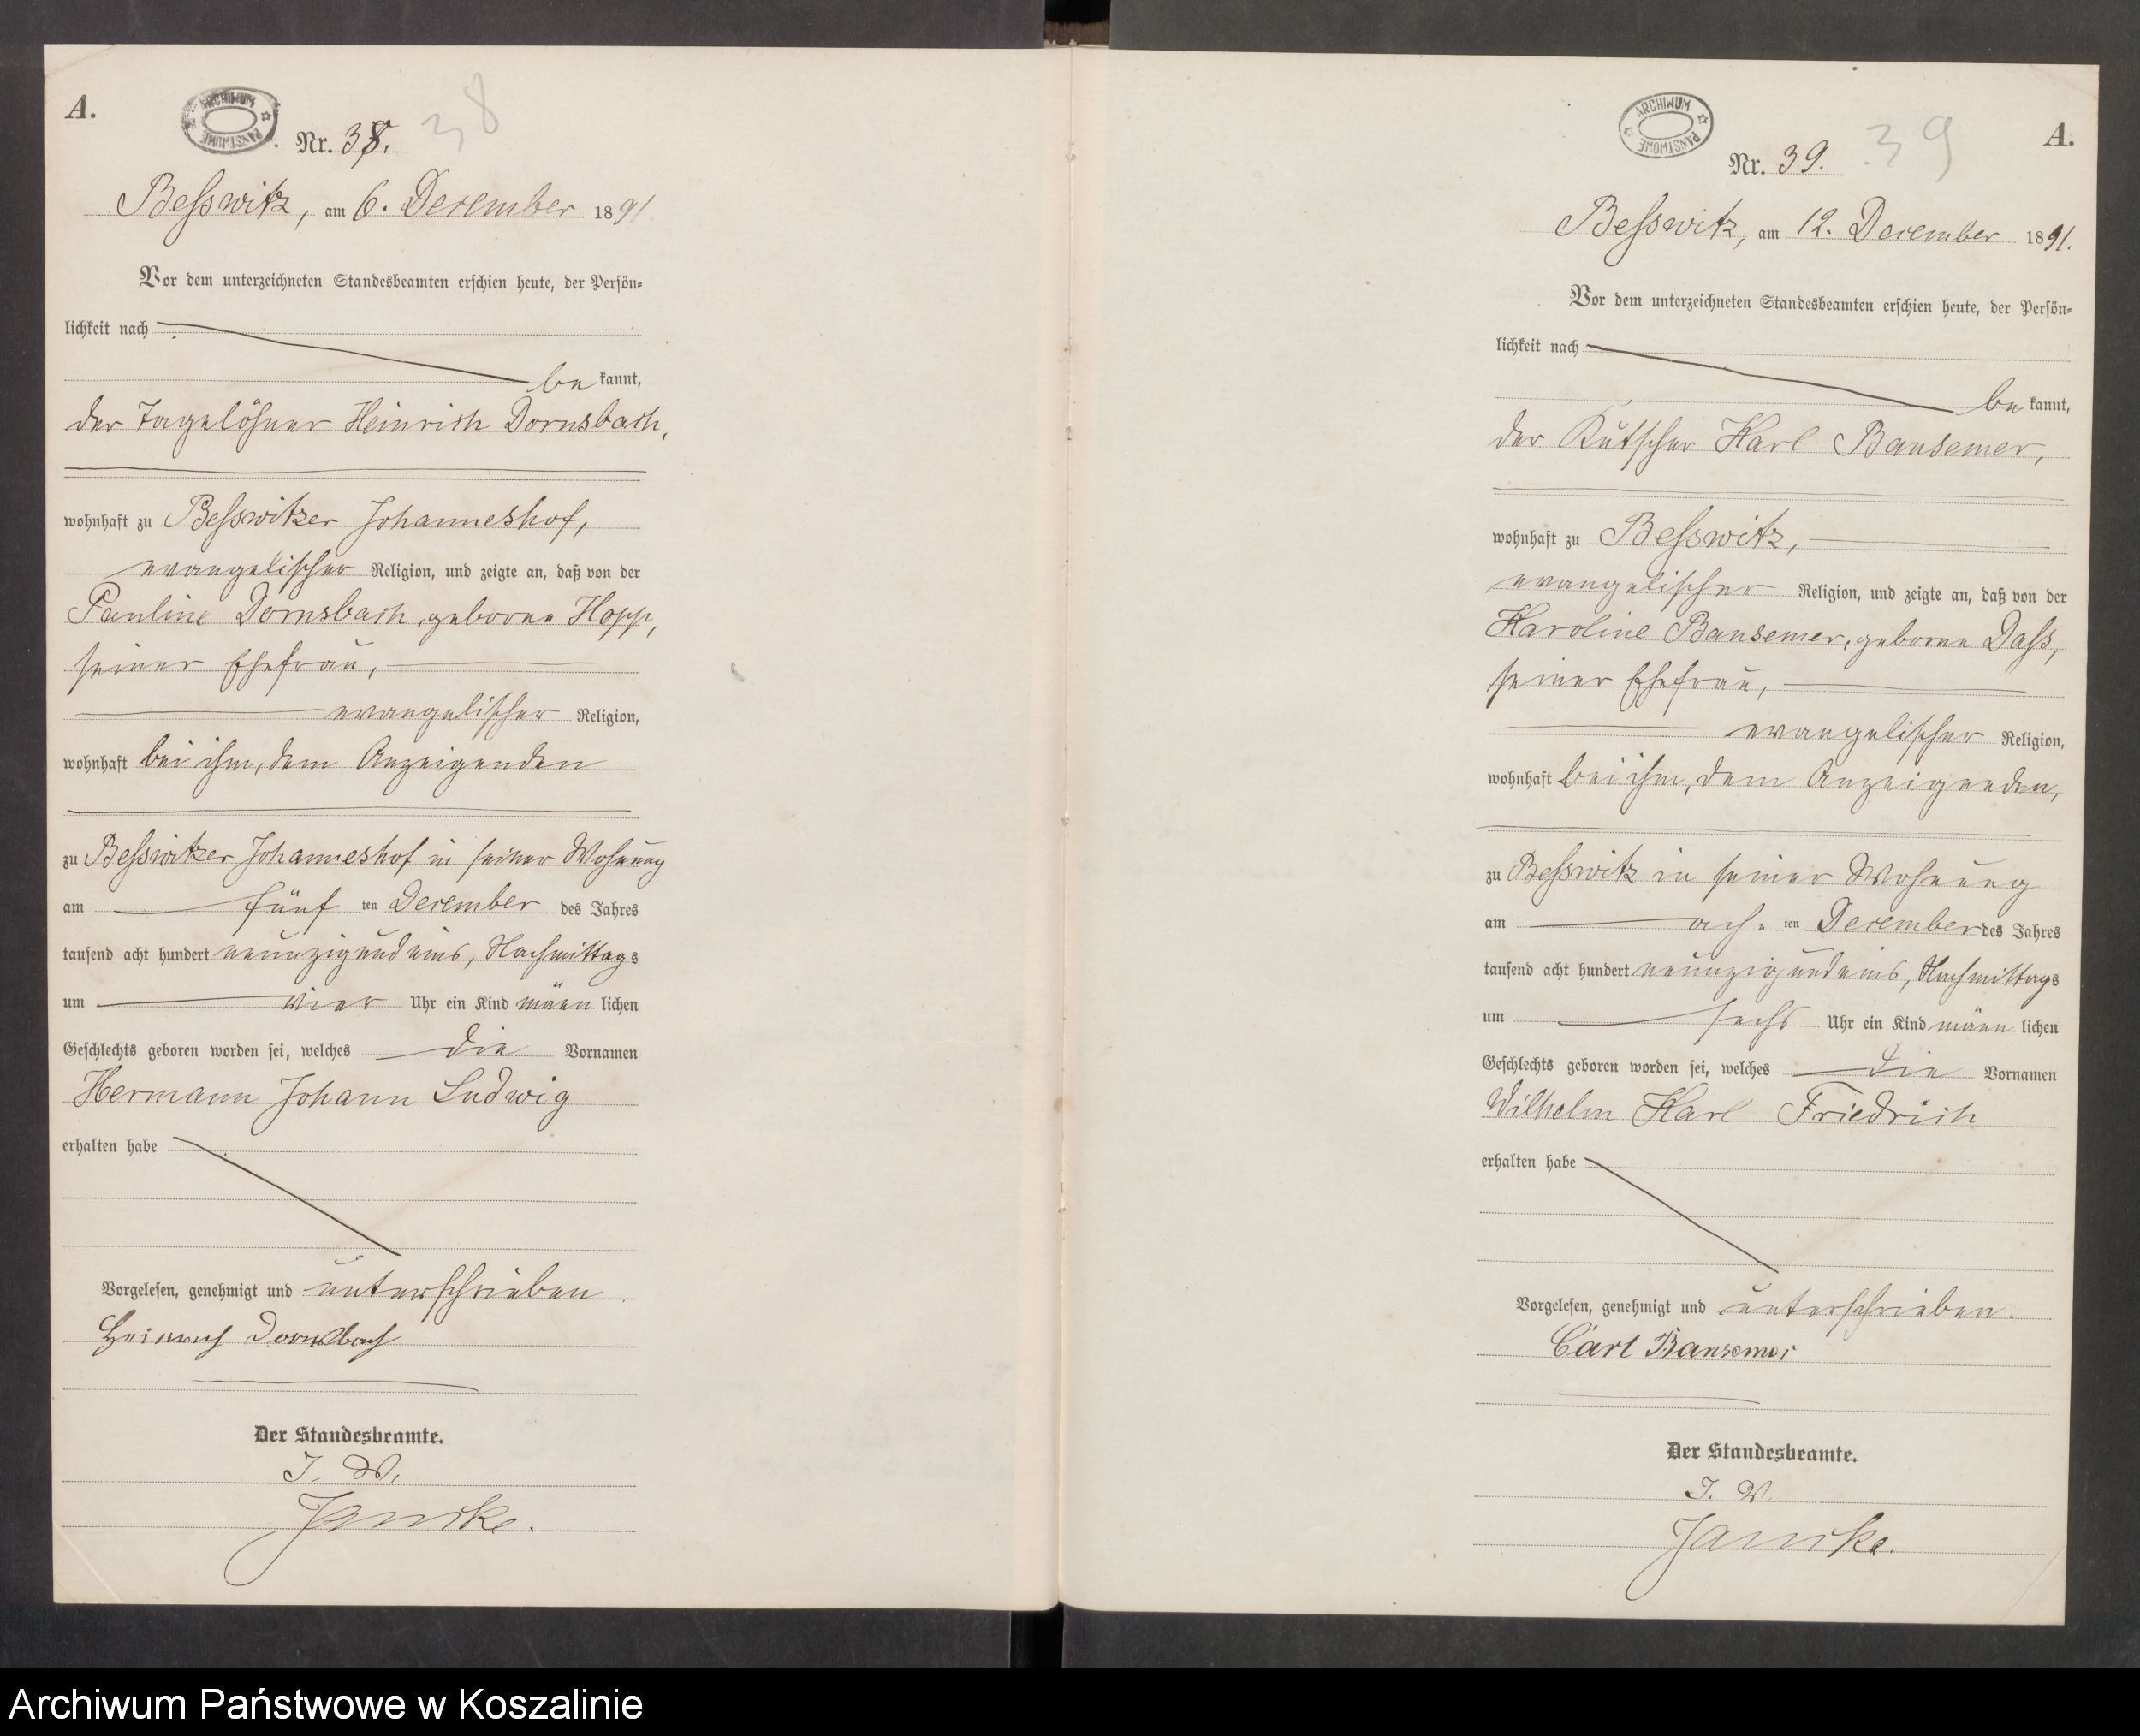 A.
ARCHIWUM PAŃSTWOWE
Nr. 38. 38
Beſswitz, am 6. December 1891
Vor dem unterzeichneten Standesbeamten erſchien heute, der Perſön-
lichkeit nach
be kannt,
der Tagelöhner Heinrich Dornsbach,
wohnhaft zu Beſswitzer Johanneshof,
evangeliſcher Religion, und zeigte an, daß von der
Pauline Dornsbach, geborne Hopp,
ſeiner Ehefrau,
evangeliſcher Religion,
wohnhaft bei ihm, dem Anzeigenden
zu Beſswitzer Johanneshof in ſeiner Wohnung
am fünf ten December des Jahres
tauſend acht hundert neunzig und eins, Nachmittags
um vier Uhr ein Kind männ lichen
Geſchlechts geboren worden ſei, welches die Vornamen
Hermann Johann Ludwig
erhalten habe
Vorgeleſen, genehmigt und unterſchrieben
Heinrich Dornsbach
Der Standesbeamte.
J. V.
Jancke.
A.
ARCHIWUM PAŃSTWOWE
Nr. 39. 39
Beſswitz, am 12. December 1891.
Vor dem unterzeichneten Standesbeamten erſchien heute, der Perſön-
lichkeit nach
be kannt,
der Kutſcher Karl Bansemer,
wohnhaft zu Beſswitz,
evangeliſcher Religion, und zeigte an, daß von der
Karoline Bansemer, geborne Daſs,
ſeiner Ehefrau,
evangeliſcher Religion,
wohnhaft bei ihm, dem Anzeigenden,
zu Beſswitz in ſeiner Wohnung
am ach- ten December des Jahres
tauſend acht hundert neunzig und eins, Nachmittags
um ſechs Uhr ein Kind männ lichen
Geſchlechts geboren worden ſei, welches die Vornamen
Wilhelm Karl Friedrich
erhalten habe
Vorgeleſen, genehmigt und unterſchrieben.
Carl Bansemer
Der Standesbeamte.
J. V.
Jancke.
Archiwum Państwowe w Koszalinie